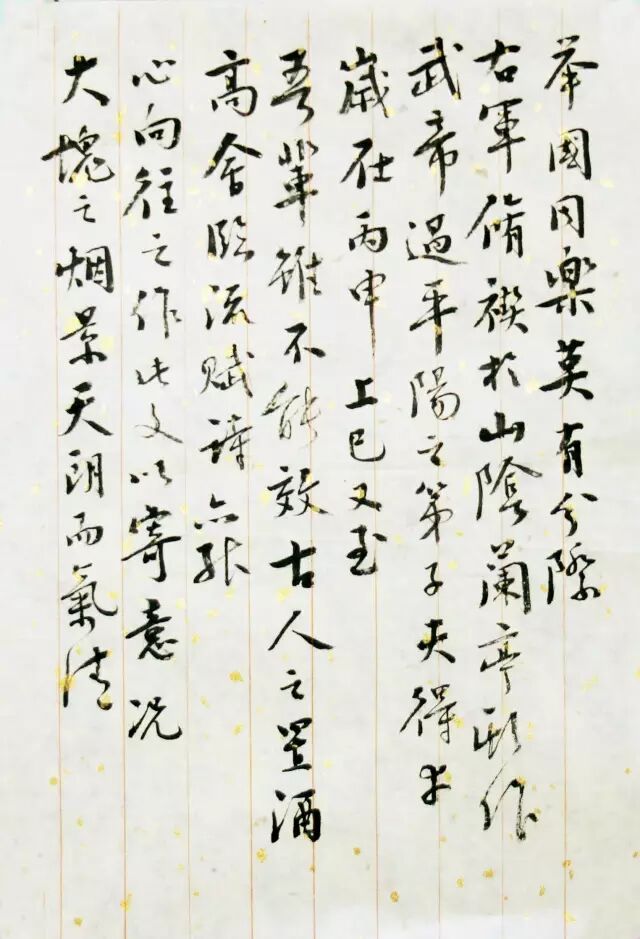 举國同樂莫有分際
右軍脩禊於山陰蘭亭作
武帝過平陽之第子夫得幸
歲在丙申上巳又至
吾輩雖不能效古人之置酒
高會臨流賦詩亦能
心向往之作此文以寄意况
大塊之烟景天朗而氣清